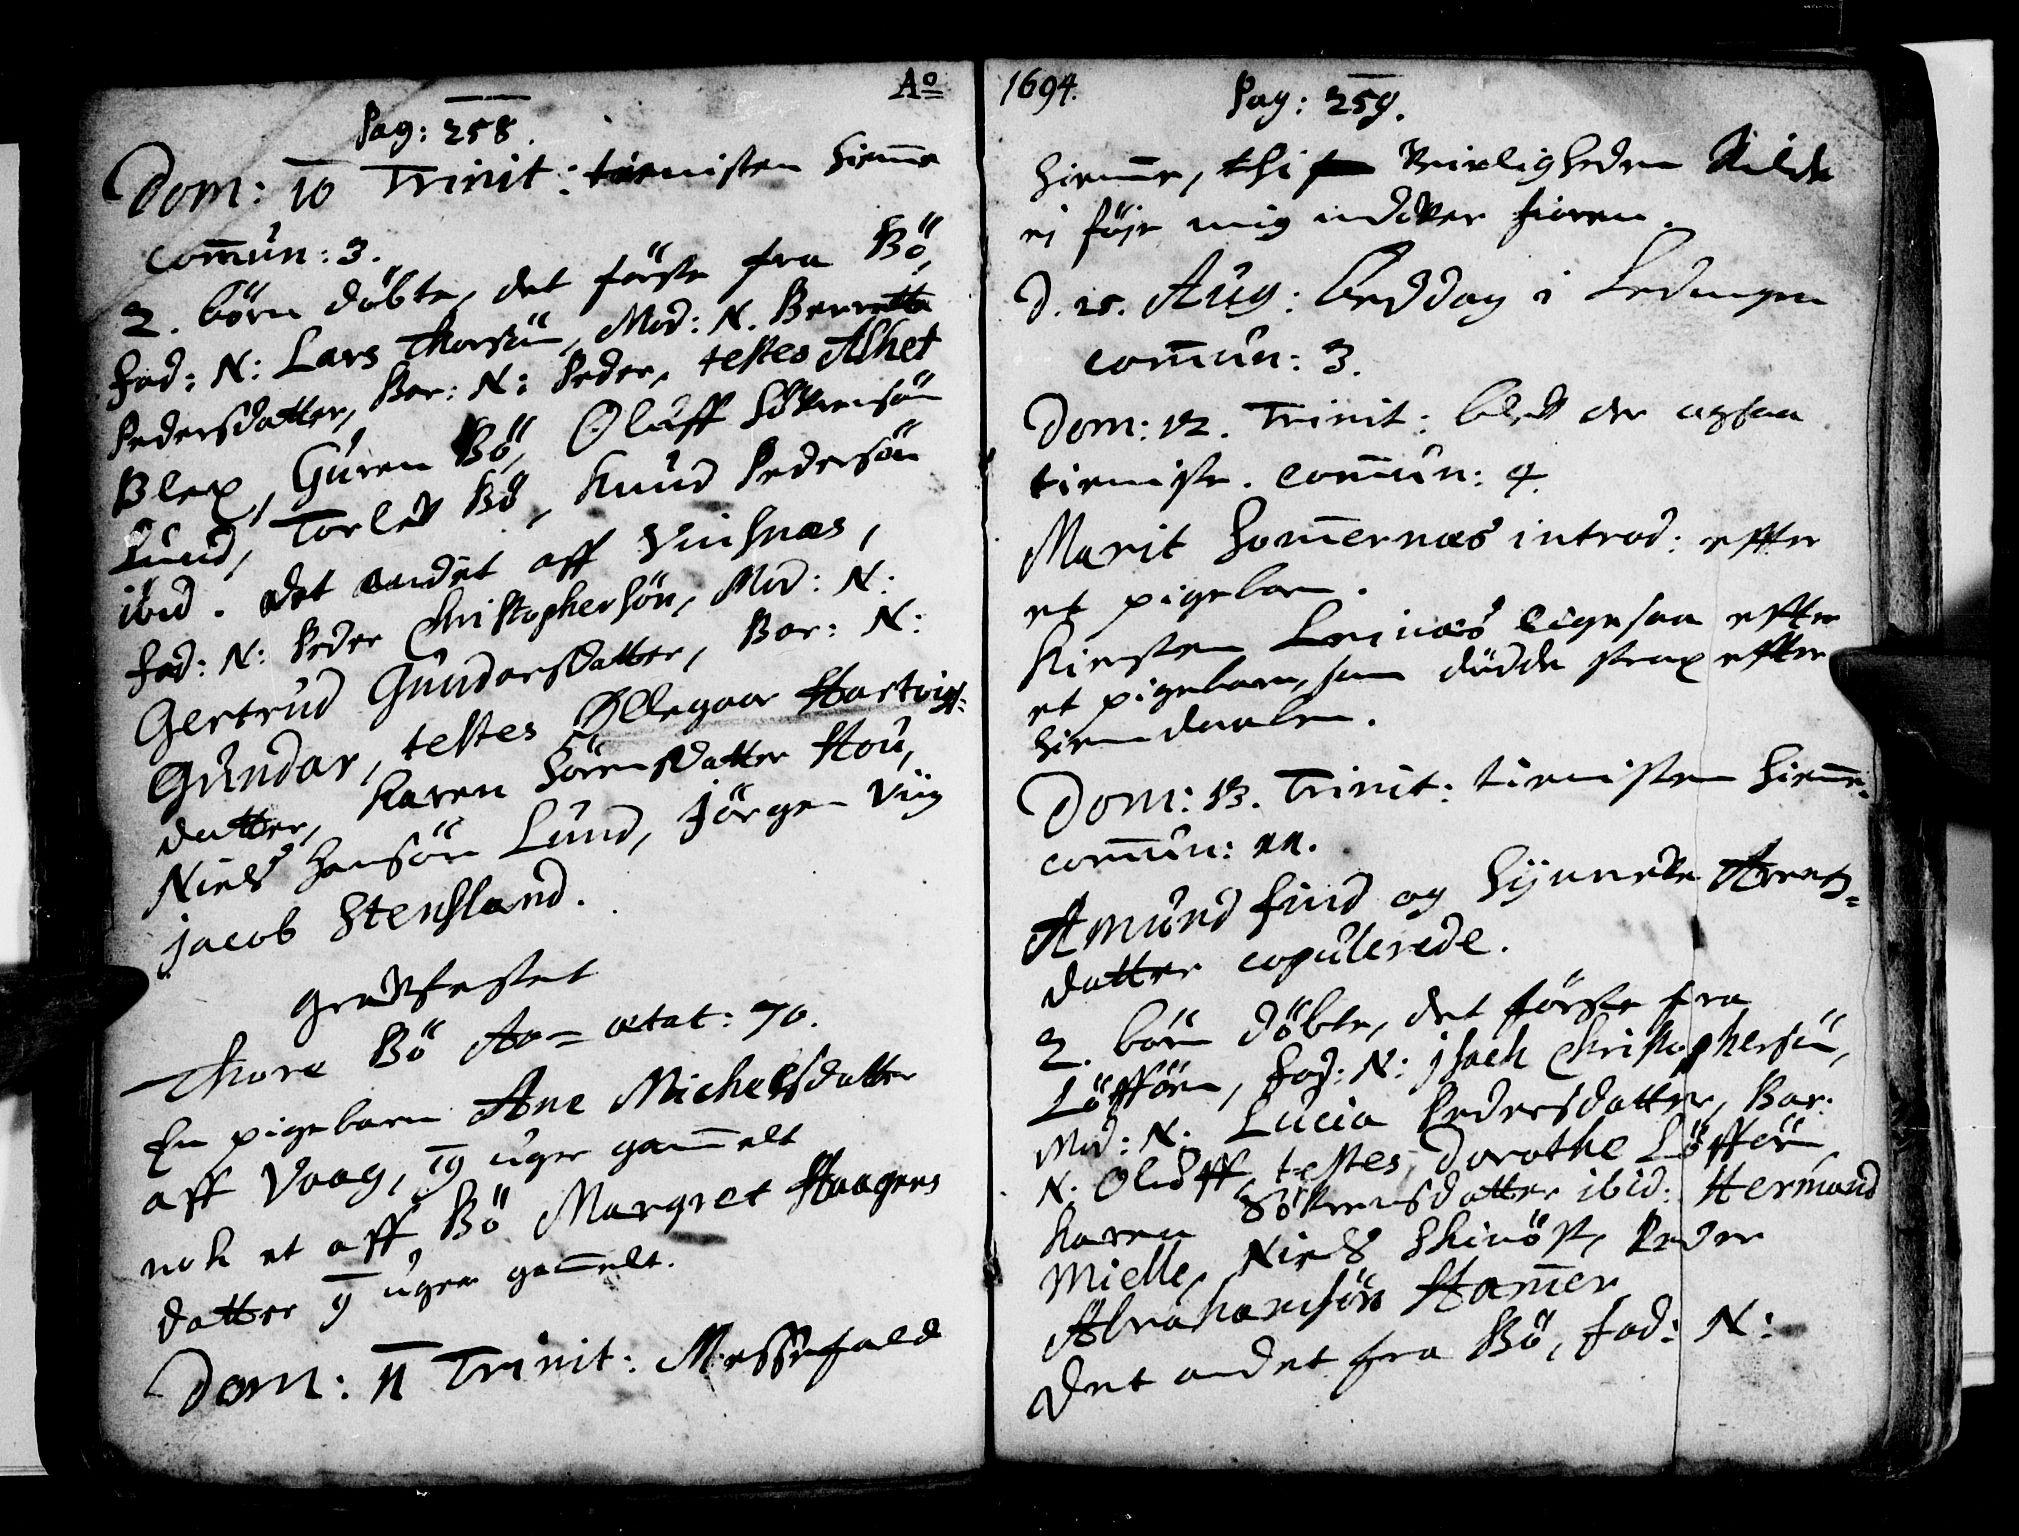 Aº
Pag: 258.
Dom: 10 Trinit: tienisten hieme
com̄un: 3.
2. börn döbte, det förste fra Bö,
Fad: N: Lars Thorsön, Mod: N. Berrette
Pedersdatter, Bar: N: Peder, testes Alhet
Blex, Guren Bö, Oluff Söffrensön
Lund, Torleff Bö, Knud Pedersön
ibid. Det andet aff
Fad: N: Peder Christophersön, Mod: N:
Gertrud Gundarsdatter, Bar: N:
Gundar, testes Ellegaar Hartvigs-
datter, Karen Sörensdatter Hou,
Niels Hansön Lund, Jörgen Viig
Jacob Stensland.
Graffestet
Thore Bö Ao= ætat: 70.
En pigebarn Ane Michelsdatter
aff Vaag, 19 uger gam̄elt
nok et aff Bö Margret Haagens
datter 9 uger gam̄elt.
Dom: 11 Trinit: Messefald
1694.
Pag: 259.
hieme, thi Veirligheden Vilde
ej föje mig indoffer fioren.
D. 25. Aug: Beddag i Ledingen
com̄un: 3.
Dom: 12. Trinit: bleff der ogsaa
tieniste. Com̄un: 4.
Marit Hom̄ernæs introd: effter
et pigebarn.
Kirsten Leinæs ligesaa effter
et pigebarn, som dödde strax effter
hiemdaaben.
Dom: 13. Trinit: tienisten hieme.
com̄un: 11.
Amund Find og Synneve Arents-
datter copulerede.
2. börn döbte, det förste fra
Löffören, Fad: N: Isach Christophersön,
Mod: N. Lucia Pedersdatter, Bar:
N. Oluff, testes, Dorothe Löffören
Karen Söffrensdatter ibid: Hermand
Mielle, Niels Peder
Abrahamsön Ham̄er
Det andet fra Bö, Fad: N: